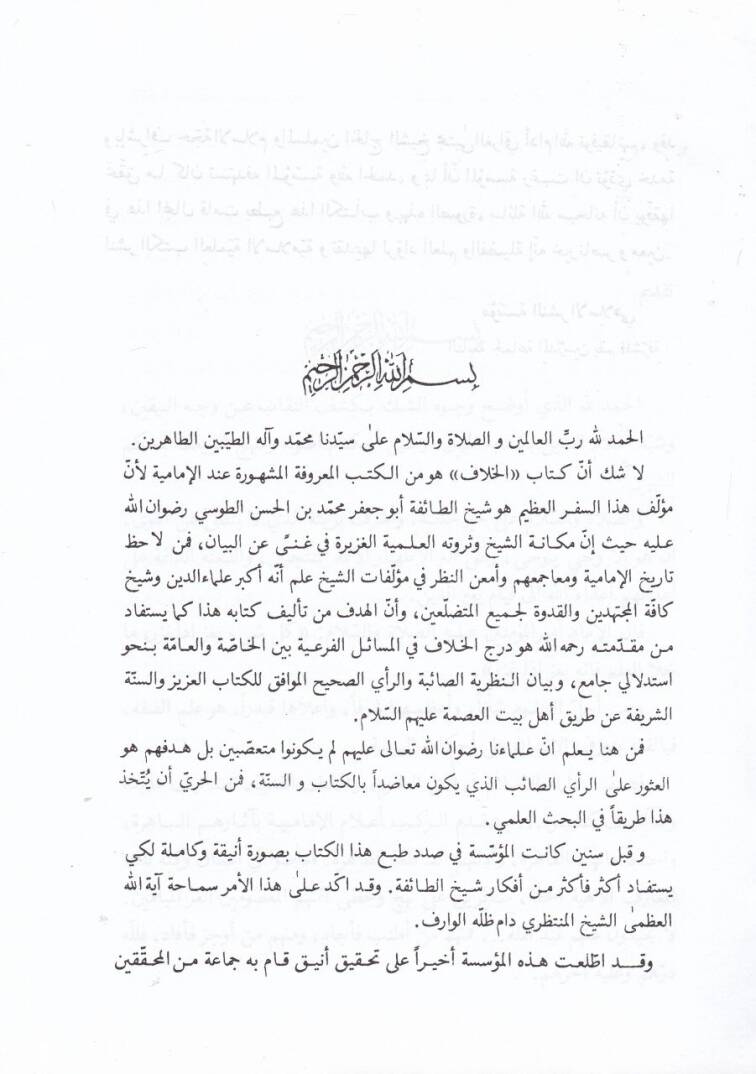 بسم الله الرحمن الرحيم
الحمد لله ربّ العالمين و الصلاة والسّلام علىٰ سيّدنا محمّد وآله الطيّبين الطاهرين.
لا شك أنّ كتاب «الخلاف» هو من الكتب المعروفة المشهورة عند الإمامية لأنّ
مؤلّف هذا السفر العظيم هو شيخ الطائفة أبو جعفر محمّد بن الحسن الطوسي رضوان الله
عليه حيث إنّ مكانة الشيخ وثروته العلمية الغزيرة في غنىً عن البيان، فمن لاحظ
تاريخ الإمامية ومعاجمهم وأمعن النظر في مؤلّفات الشيخ علم أنّه أكبر علماء الدين وشيخ
كافّة المجتهدين والقدوة لجميع المتضلّعين، وأنّ الهدف من تأليف كتابه هذا كما يستفاد
من مقدّمته رحمه الله هو درج الخلاف في المسائل الفرعية بين الخاصّة والعامّة بنحو
استدلالي جامع، وبيان النظرية الصائبة والرأي الصحيح الموافق للكتاب العزيز والسنّة
الشريفة عن طريق أهل بيت العصمة عليهم السّلام.
فمن هنا يعلم انّ علماءنا رضوان الله تعالى عليهم لم يكونوا متعصّبين بل هدفهم هو
العثور علىٰ الرأي الصائب الذي يكون معاضداً بالكتاب و السنّة، فمن الحريّ أن يُتّخذ
هذا طريقاً في البحث العلمي.
و قبل سنين كانت المؤسّسة في صدد طبع هذا الكتاب بصورة أنيقة وكاملة لكي
يستفاد أكثر فأكثر من أفكار شيخ الطائفة. وقد اكّد علىٰ هذا الأمر سماحة آية الله
العظمىٰ الشيخ المنتظري دام ظلّه الوارف.
وقد اطّلعت هذه المؤسسة أخيراً على تحقيق أنيق قام به جماعة من المحقّقين